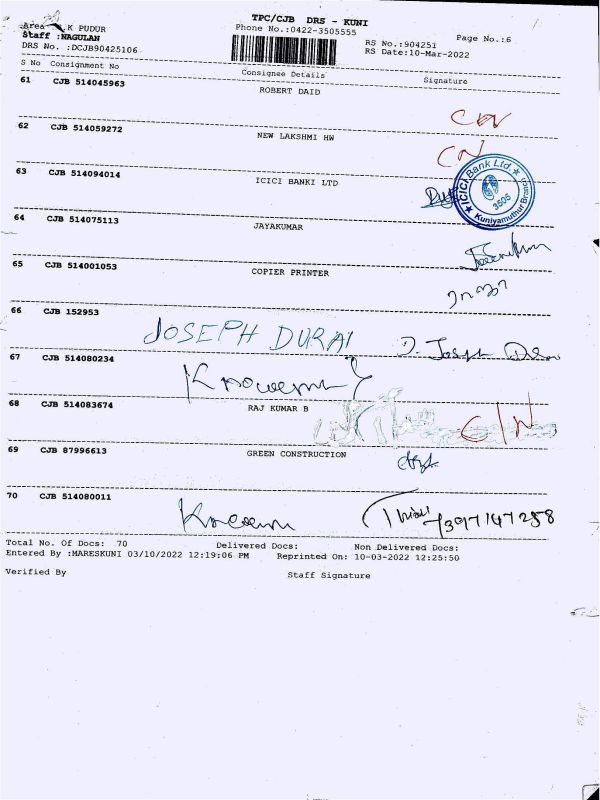 TPC/CJB DRS - KUNI
Area K PUDUR
Phone No.:0422-3505555
Page No.:6
Staff :NAGULAN
RS No.:904251
DRS No. :DCJB90425106
RS Date:10-Mar-2022
S No Consignment No Consignee Details Signature
61 CJB 514045963 ROBERT DAID
CN
62 CJB 514059272 NEW LAKSHMI HW
CN
63 CJB 514094014 ICICI BANKI LTD
ICICI Bank Ltd.
3505
Kuniyamuthur Branch
64 CJB 514075113 JAYAKUMAR
65 CJB 514001053 COPIER PRINTER
66 CJB 152953
JOSEPH DURAI D. Joseph
67 CJB 514080234
68 CJB 514083674 RAJ KUMAR B
C/N
69 CJB 87996613 GREEN CONSTRUCTION
70 CJB 514080011
7397147258
Total No. Of Docs: 70 Delivered Docs: Non Delivered Docs:
Entered By :MARESKUNI 03/10/2022 12:19:06 PM Reprinted On: 10-03-2022 12:25:50
Verified By Staff Signature